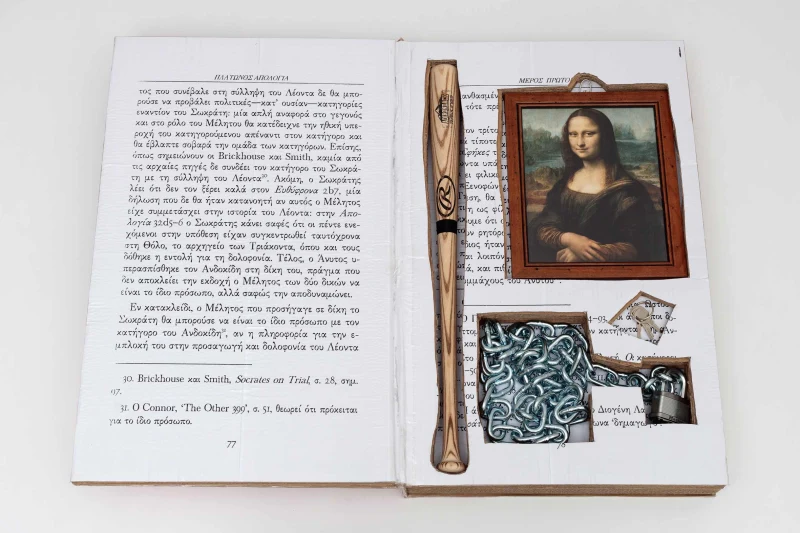 ΠΛΑΤΩΝΟΣ ΑΠΟΛΟΓΙΑ
τος που συνέβαλε στη σύλληψη του Λέοντα δε θα μπο-
ρούσε να προβάλει πολιτικές—κατ' ουσίαν—κατηγορίες
εναντίον του Σωκράτη: μία απλή αναφορά στο γεγονός
και στο ρόλο του Μέλητου θα κατέδειχνε την ηθική υπε-
ροχή του κατηγορούμενου απέναντι στον κατήγορο και
θα έβλαπτε σοβαρά την ομάδα των κατηγόρων. Επίσης,
όπως σημειώνουν οι Brickhouse και Smith, καμία από
τις αρχαίες πηγές δε συνδέει τον κατήγορο του Σωκρά-
τη με τη σύλληψη του Λέοντα³⁰. Ακόμη, ο Σωκράτης
λέει ότι δεν τον ξέρει καλά στον Ευθύφρονα 2b7, μία
δήλωση που δε θα ήταν κατανοητή αν αυτός ο Μέλητος
είχε συμμετάσχει στην ιστορία του Λέοντα: στην Απο-
λογία 32d5–6 ο Σωκράτης κάνει σαφές ότι οι πέντε ενε-
χόμενοι στην υπόθεση είχαν συγκεντρωθεί ταυτόχρονα
στη Θόλο, το αρχηγείο των Τριάκοντα, όπου και τους
δόθηκε η εντολή για τη δολοφονία. Τέλος, ο Άνυτος υ-
περασπίσθηκε τον Ανδοκίδη στη δίκη του, πράγμα που
δεν αποκλείει την εκδοχή ο Μέλητος των δύο δικών να
είναι το ίδιο πρόσωπο, αλλά σαφώς την αποδυναμώνει.
Εν κατακλείδι, ο Μέλητος που προσήγαγε σε δίκη το
Σωκράτη θα μπορούσε να είναι το ίδιο πρόσωπο με τον
κατήγορο του Ανδοκίδη³¹, αν η πληροφορία για την ε-
μπλοκή του στην προσαγωγή και δολοφονία του Λέοντα
30. Brickhouse και Smith, Socrates on Trial, σ. 28, σημ.
97.
31. Ο Connor, 'The Other 399', σ. 51, θεωρεί ότι πρόκειται
για το ίδιο πρόσωπο.
77
ΜΕΡΟΣ ΠΡΩΤΟ
τότε
τον τρίτο
Ξενοφών
ως
ότι
ήταν
και
μμάχους του Ανύτου
Διογένη Λα
ωνα 'δημαγωγ
78